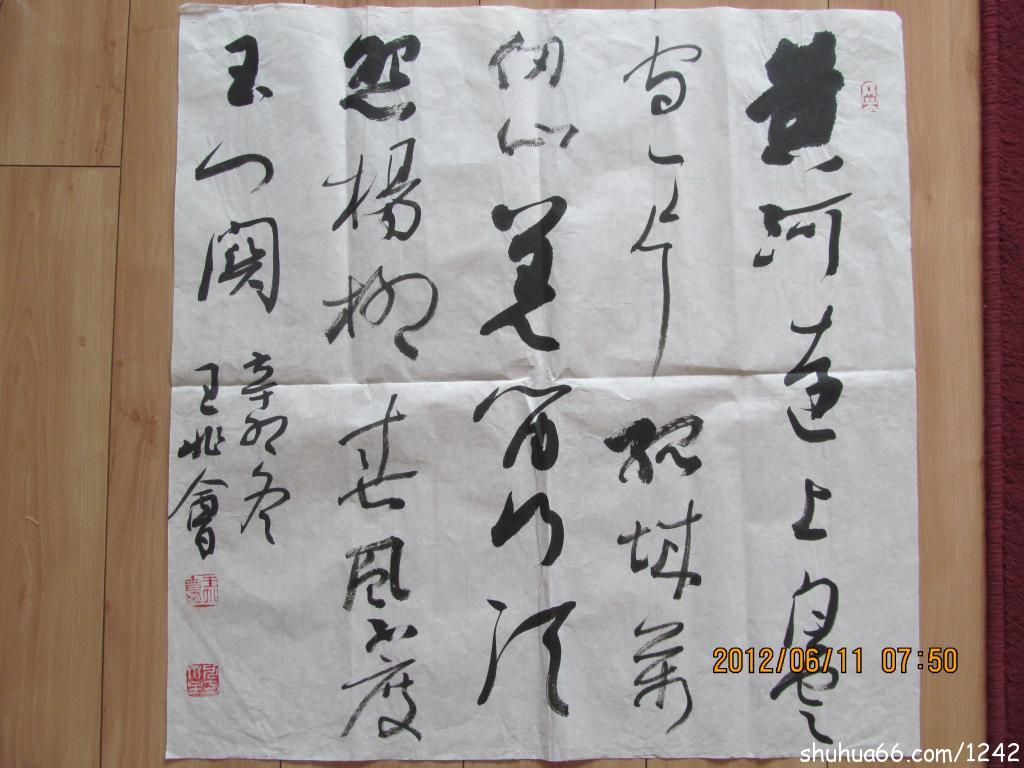 黄河遠上白雲
间一片孤城萬
仞山羌笛何須
怨楊柳春風不度
玉门關
辛卯冬
王兆會
2012/06/11 07:50
shuhua66.com/1242